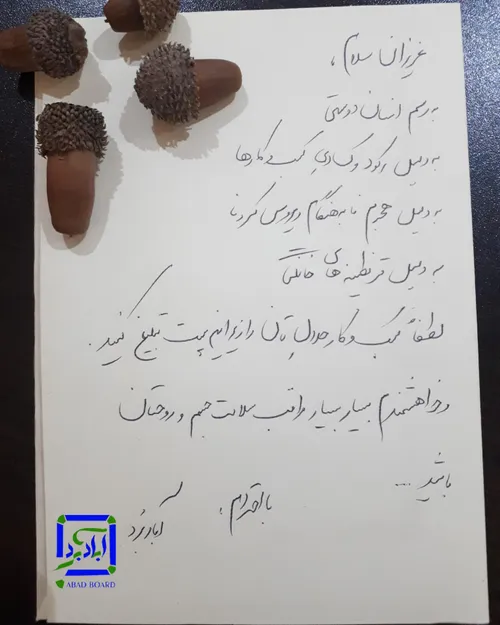 عزیزان سلام،
به رسم انسان دوستی
به دلیل رکود و کسادی کسب و کارها
به دلیل هجوم نابهنگام ویروس کرونا
به دلیل قرنطینه های خانگی
لطفاً کسب و کار حلال تان را زیر این پست تبلیغ کنید.
و خواهشمندم بسیار بسیار مراقب سلامت جسم و روحتان
باشید ....
با احترام،
آباد برد
آباد برد
ABAD BOARD